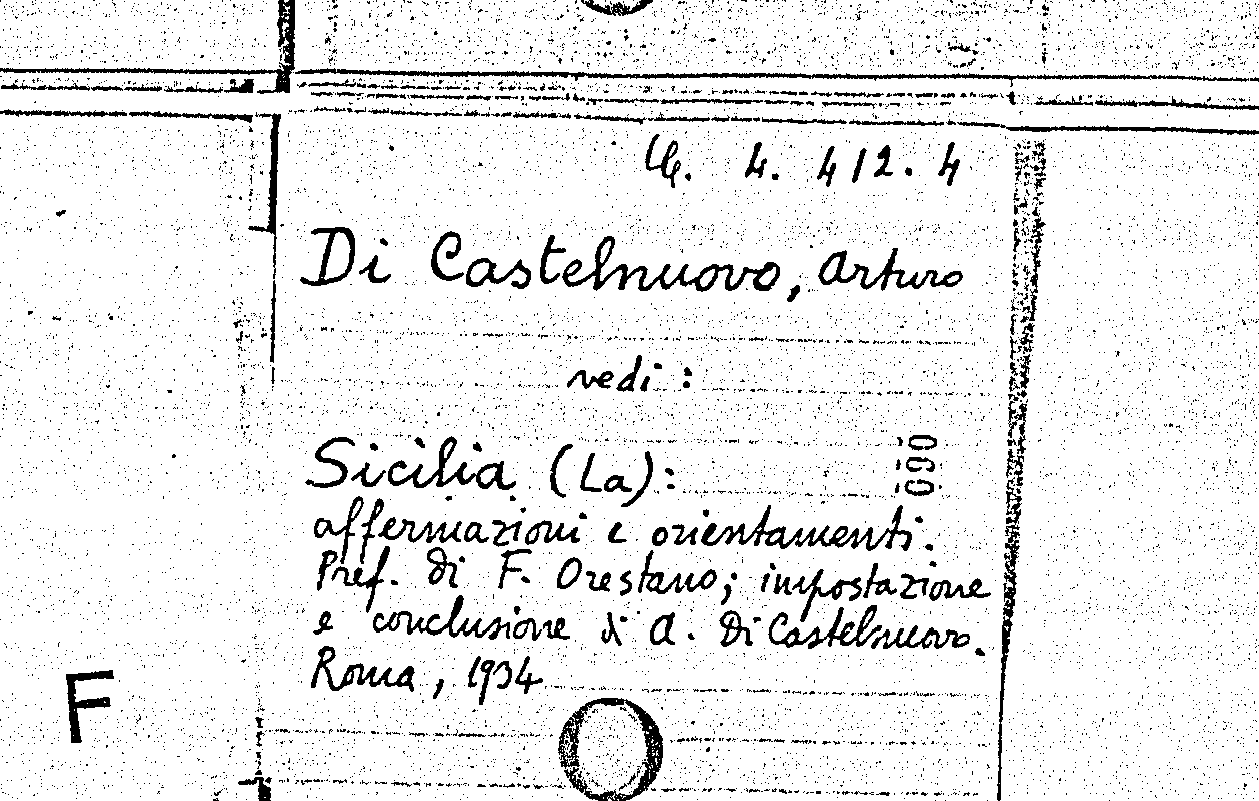 4. 412. 4
Di Castelnuovo, Arturo
vedi :
Sicilia (La):
090
affermazioni e orientamenti.
Pref. di F. Orestano; impostazione
e conclusione di A. Di Castelnuovo.
Roma, 1934
F